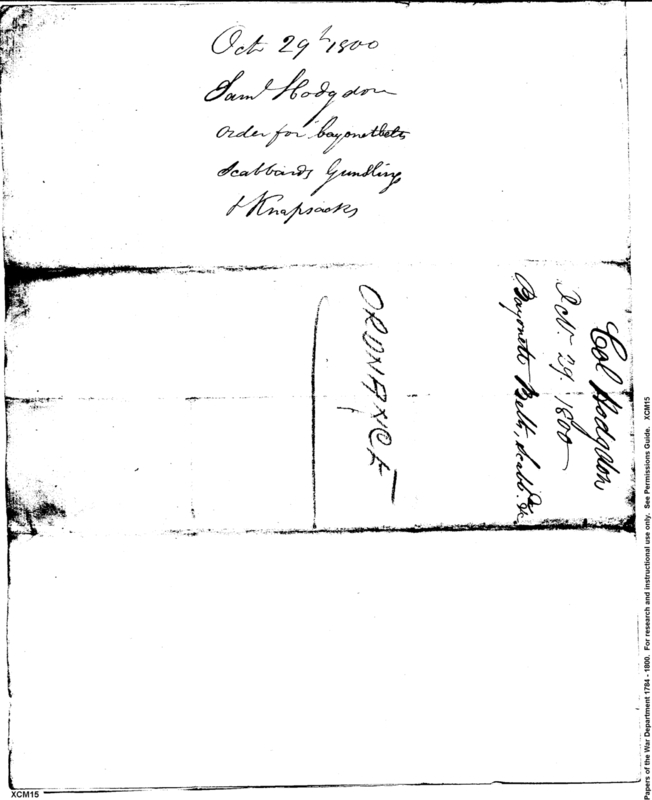 Oct 29th 1800
Saml Hodgdon
order for bayonetbelts
Scabbards Gunslings
& Knapsacks
Col Hodgdon
Oct. 29. 1800
Bayonett Belts, Scabbds. &c.
ORDNANCE
Papers of the War Department 1784 - 1800. For research and instructional use only. See Permissions Guide. XCM15
XCM15